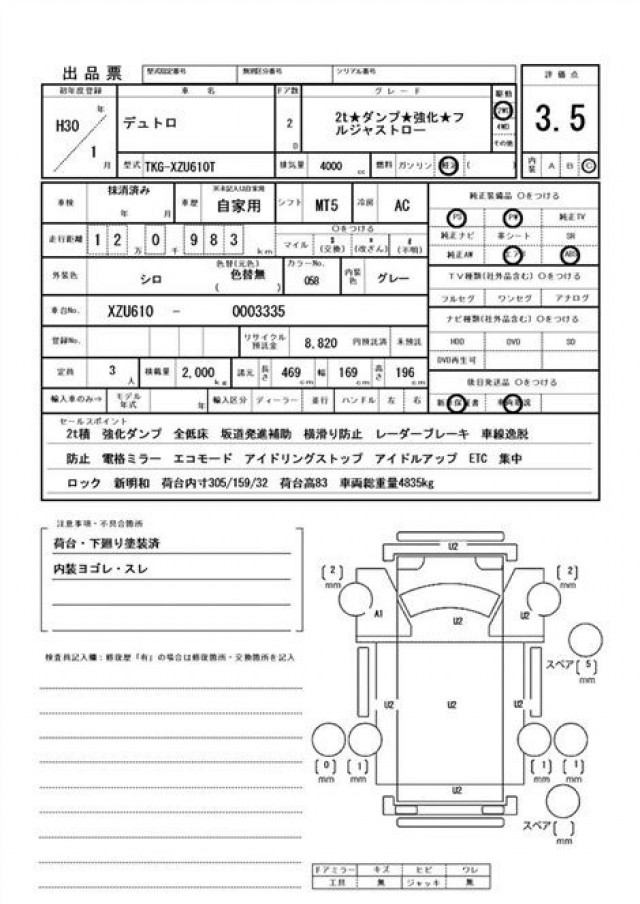 出品票 型式指定番号 類別区分番号 シリアル番号 評価点
初年度登録 車名 ドア数 グレード 駆動
H30 年 1 月 デュトロ 2 D 2t★ダンプ★強化★フルジャストロー 2WD 4WD その他 3.5
型式 TKG-XZU610T 排気量 4000 cc 燃料 ガソリン 軽油 ( ) 内装 A B C
車検 抹消済み 年 月 車歴 ※未記入は自家用 自家用 シフト MT5 冷房 AC 純正装備品 ○をつける
PS PW 純正TV
走行距離 12万0千983km ○をつける マイル $(交換) *(改ざん) #(不明) 純正ナビ 革シート SR
純正AW エアB ABS
外装色 シロ 色替(元色) 色替無 ( ) カラーNo. 058 内装色 グレー TV種類(社外品含む) ○をつける
フルセグ ワンセグ アナログ
車台No. XZU610 - 0003335 ナビ種類(社外品含む) ○をつける
登録No. リサイクル預託金 8,820 円預託済 未預託 HDD DVD SD
DVD再生可
定員 3 人 積載量 2,000 kg 諸元 長さ 469 cm 幅 169 cm 高さ 196 cm 後日発送品 ○をつける
輸入車のみ⇒ モデル年式 年 輸入区分 ディーラー 並行 ハンドル 左 右 新車保証書 車両取説
セールスポイント
2t積 強化ダンプ 全低床 坂道発進補助 横滑り防止 レーダーブレーキ 車線逸脱
防止 電格ミラー エコモード アイドリングストップ アイドルアップ ETC 集中
ロック 新明和 荷台内寸305/159/32 荷台高83 車両総重量4835kg
注意事項・不具合箇所
荷台・下廻り塗装済
内装ヨゴレ・スレ
検査員記入欄:修復歴「有」の場合は修復箇所・交換箇所を記入
U2
[2] mm [2] mm
A1 U2
スペア[5] mm
U2 U2 U2
[0] mm [1] mm [1] mm [1] mm
U2
スペア[ ] mm
ドアミラー キズ ヒビ ワレ
工具 無 ジャッキ 無